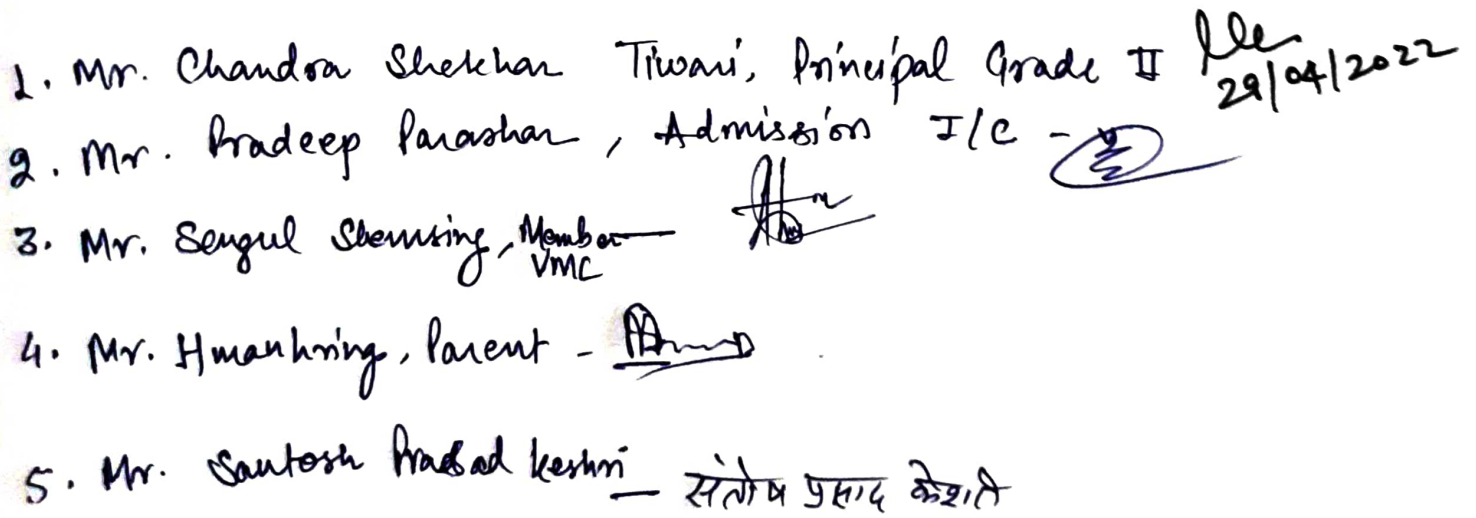 1. Mr. Chandra Shekhar Tiwari, Principal Grade II
29/04/2022
2. Mr. Pradeep Parashar, Admission I/C -
3. Mr. Sengul Shemsing, Member
VMC
4. Mr. Hmanhring, Parent -
5. Mr. Santosh Prasad Keshri - संतोष प्रसाद केशरी